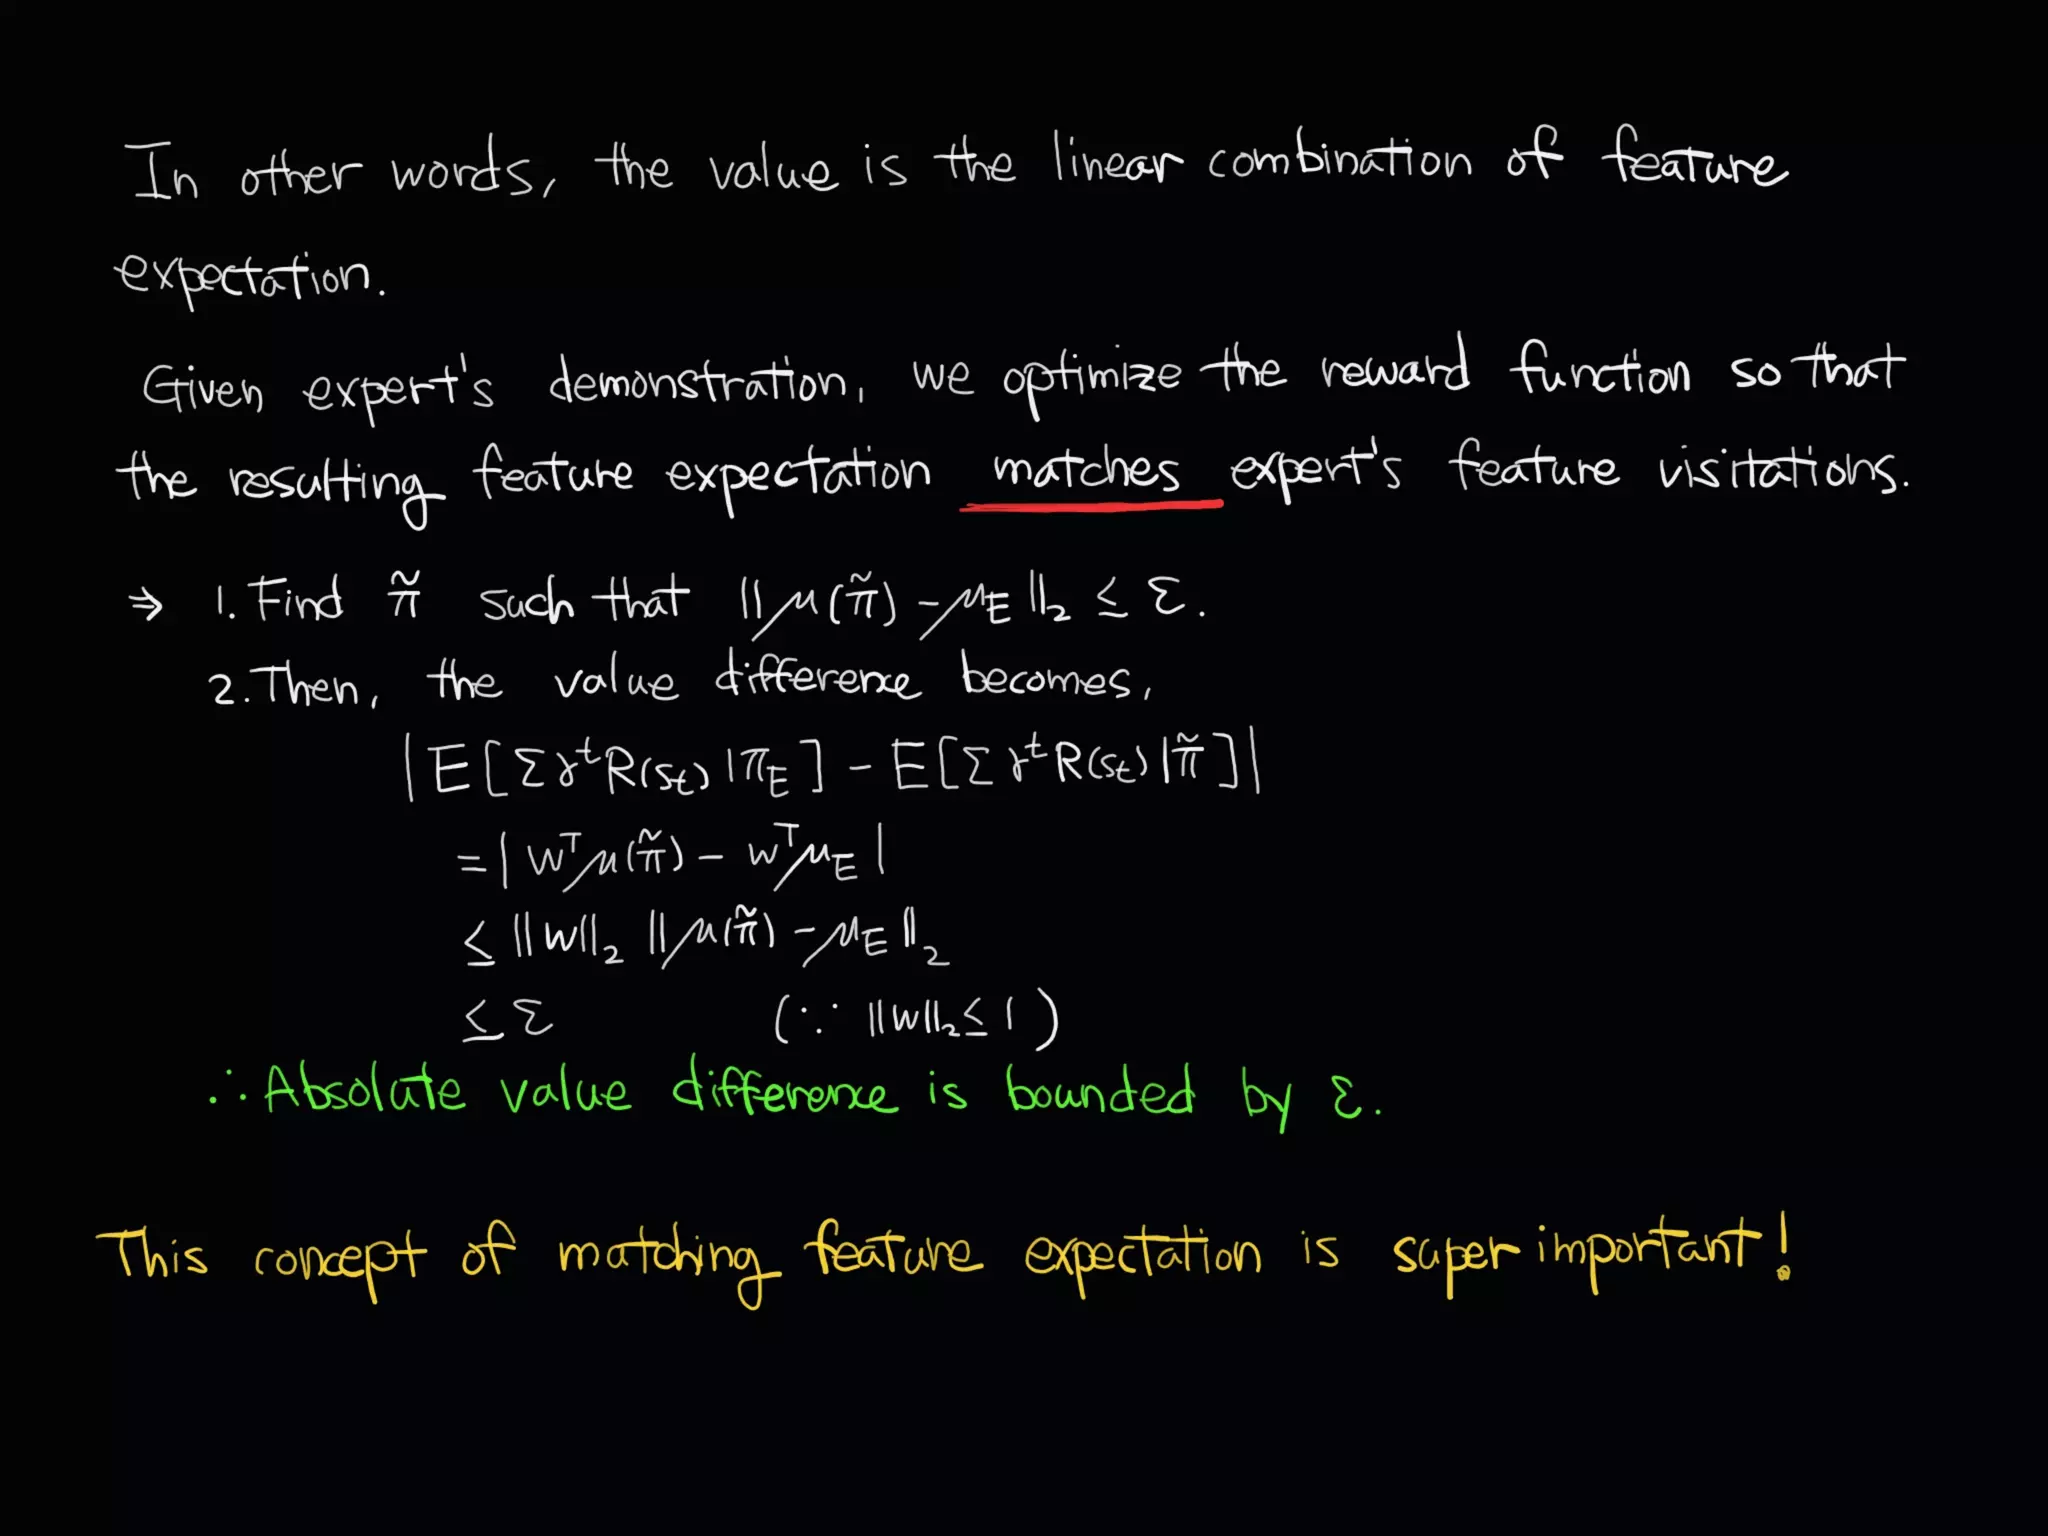 In other words, the value is the linear combination of feature
expectation.
Given expert's demonstration, we optimize the reward function so that
the resulting feature expectation matches expert's feature visitations.
⇒ 1. Find π̃ such that ||μ(π̃) - μ_E||₂ ≤ ε.
2. Then, the value difference becomes,
|E[Σγ^t R(s_t) |π_E] - E[Σγ^t R(s_t) |π̃]|
= |w^T μ(π̃) - w^T μ_E|
≤ ||w||₂ ||μ(π̃) - μ_E||₂
≤ ε (∵ ||w||₂ ≤ 1)
∴ Absolute value difference is bounded by ε.
This concept of matching feature expectation is super important!